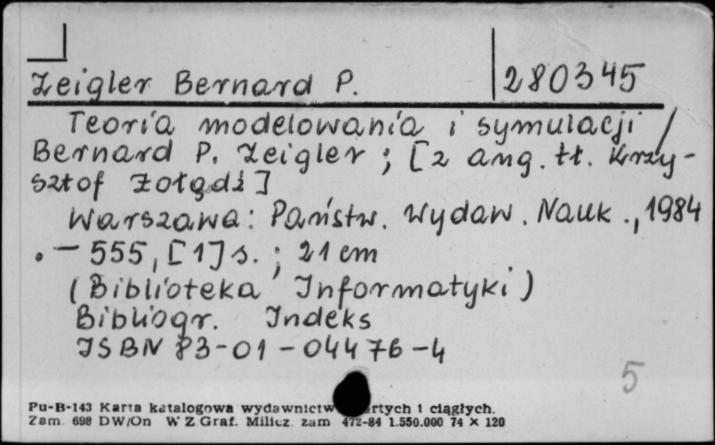 Zeigler Bernard P. 280345
Teoria modelowania i symulacji /
Bernard P. Zeigler ; [z ang. tł. Krzy-
sztof Żołądź]
Warszawa: Państw. Wydaw. Nauk., 1984
. — 555, [1] s. ; 21 cm
(Biblioteka Informatyki)
Bibliogr. Indeks
ISBN 83-01-04476-4
5
Pu-B-143 Karta katalogowa wydawnictw i ciągłych.
Zam. 698 DW/On W Z Graf. Milicz zam 472-84 1.550.000 74 × 120